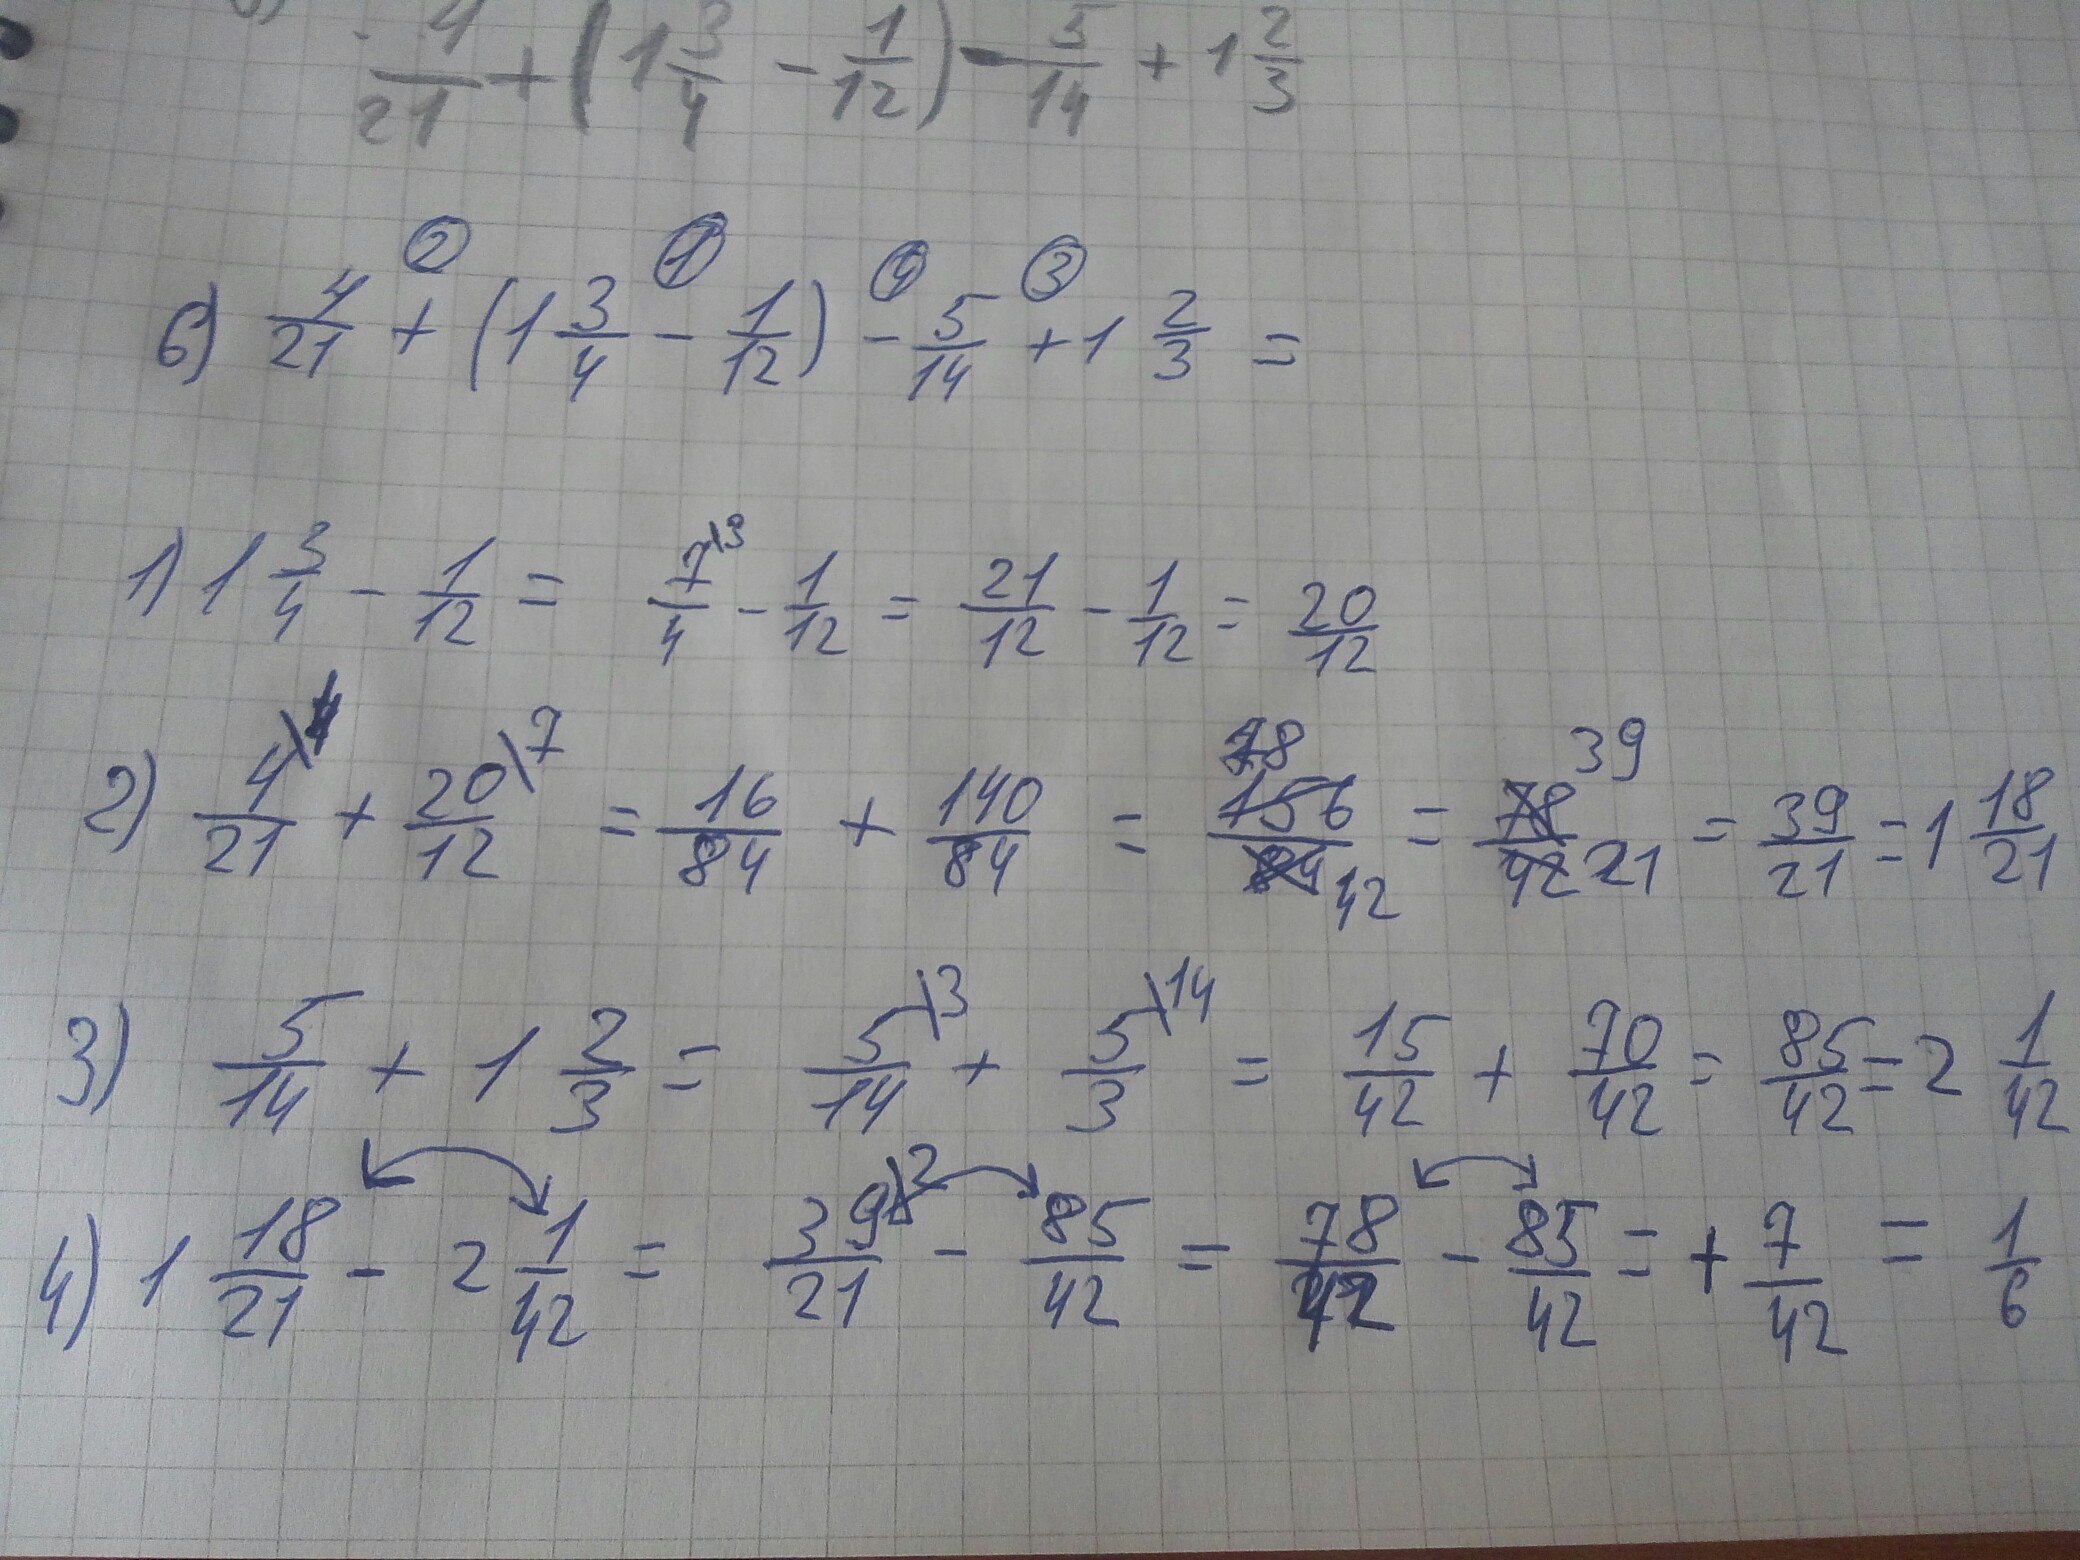 4/21 + (1 3/4 - 1/12) - 5/14 + 1 2/3
② ① ④ ③
б) 4/21 + (1 3/4 - 1/12) - 5/14 + 1 2/3 =
1) 1 3/4 - 1/12 = 7\3/4 - 1/12 = 21/12 - 1/12 = 20/12
2) 4\4/21 + 20\7/12 = 16/84 + 140/84 = 156/84 78/42 = 78/42 39/21 = 39/21 = 1 18/21
3) 5/14 + 1 2/3 = 5\3/14 + 5\14/3 = 15/42 + 70/42 = 85/42 = 2 1/42
4) 1 18/21 - 2 1/42 = 39\2/21 - 85/42 = 78/42 - 85/42 = + 7/42 = 1/6